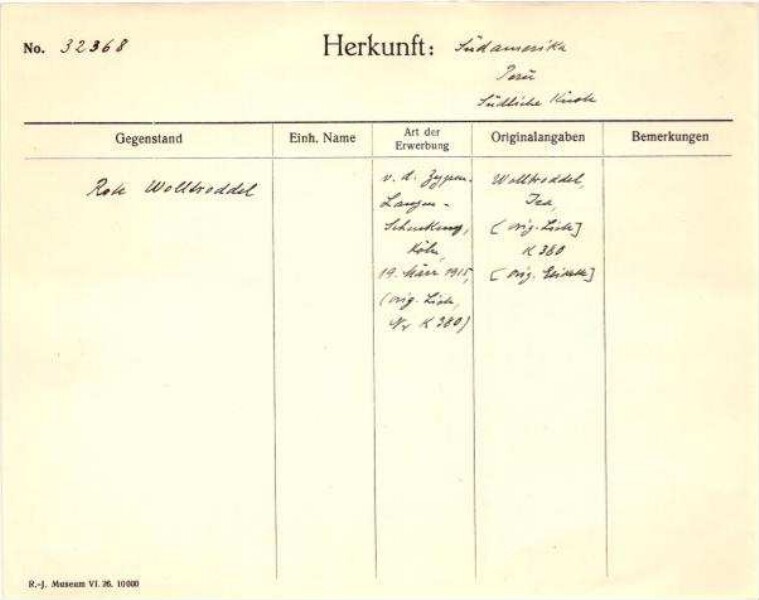 No. 32368
Herkunft: Südamerika
Perú
Südliche Küste
Gegenstand
Einh. Name
Art der Erwerbung
Originalangaben
Bemerkungen
Rote Wolltroddel
v. d. Zypen-
Langen-
Schenkung,
Köln,
19. März 1915,
(orig. Liste,
Nr K 380)
Wolltroddel,
Ica,
[orig. Liste]
K 380
[orig. Etikette]
R.-J. Museum VI. 26. 10000